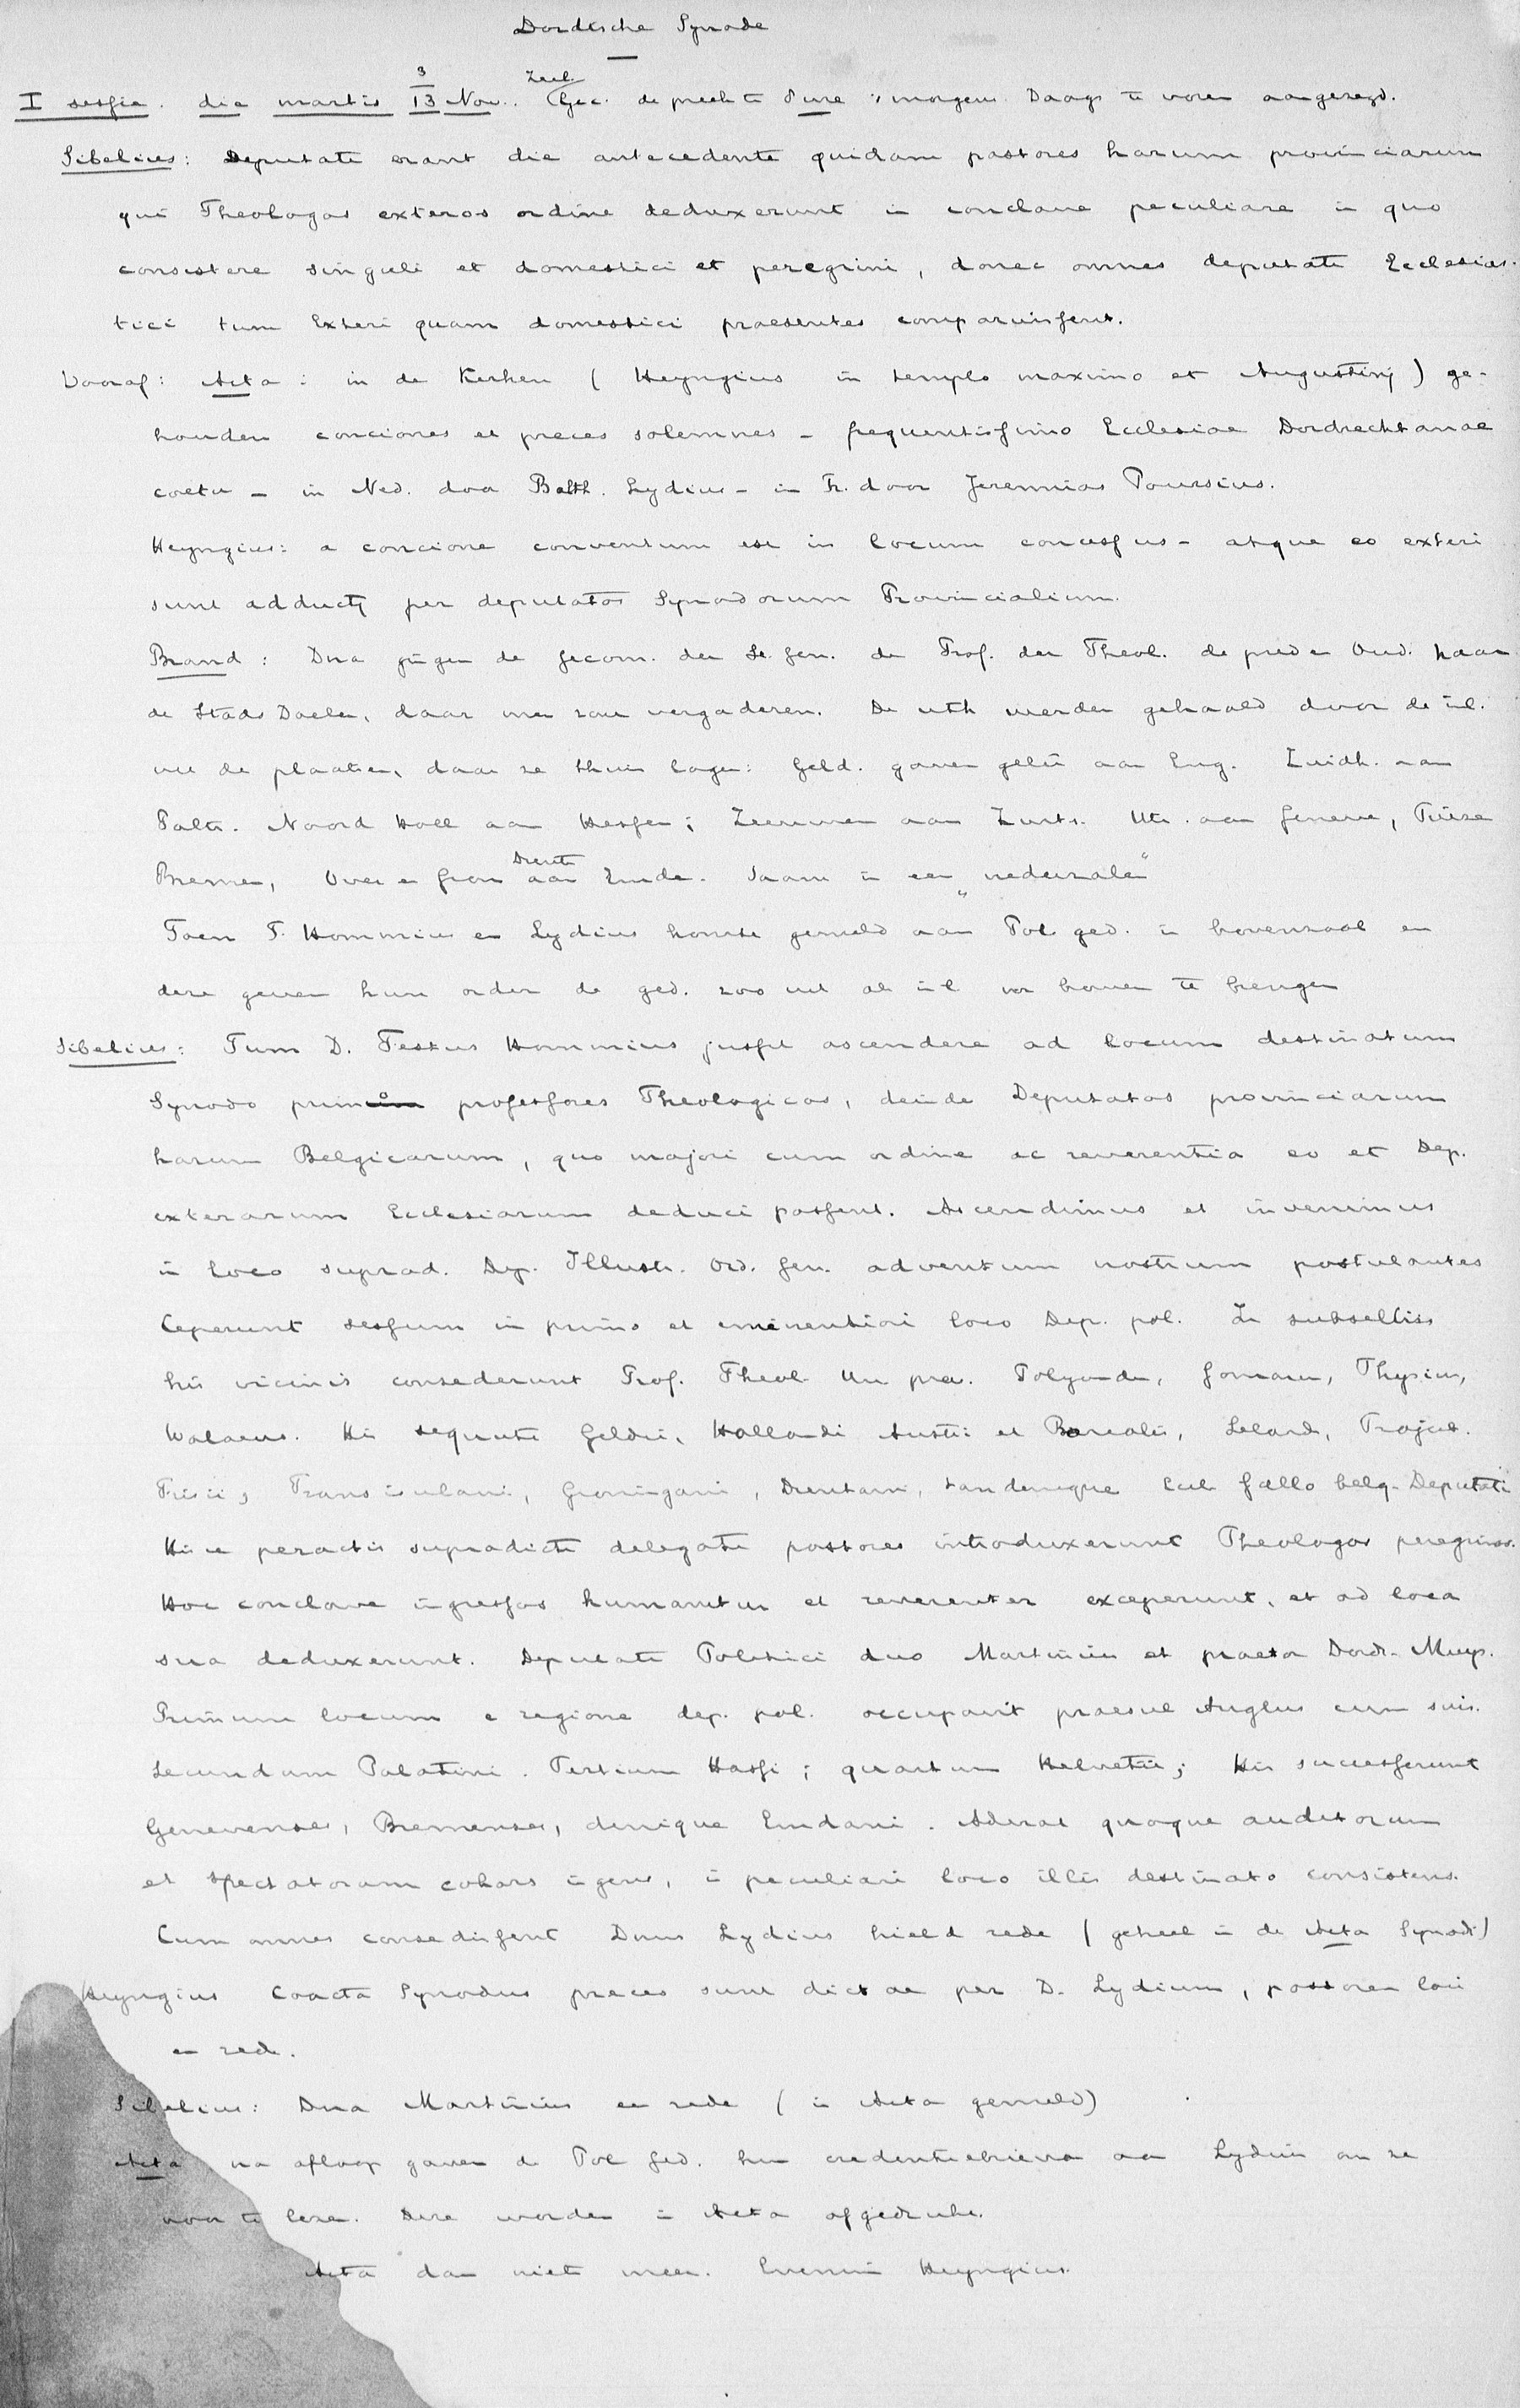 Dordtsche Synode
I sessie. die martis 3/13 Nov. Zeel. Gec. de precht te 9 ure 's morgens. Daags te voren aangezegd.
Sibelius: Deputati erant die antecedente quidam pastores harum provinciarum
qui Theologos exteros ordine deduxerunt in conclave peculiare in quo
consistere singuli et domestici et peregrini, donec omnes deputati Ecclesias-
tici tum Exteri quam domestici praesentes comparuissent.
Vooraf: Acta: in de Kerken (Heyngius in templo maximo et Augustinj) ge-
houden conciones et preces solemnes - frequentissimo Ecclesiae Dordrechtanae
coetu - in Ned. door Balth. Lydius - in Fr. door Jeremias Poursius.
Heyngius: a concione conventum est in locum concessus - atque eo exteri
sunt adductj per deputatos Synodorum Provincialium.
Brand: Dna gingen de Gecom. der St. Gen. de Prof. der Theol. de pred en Oud. naar
de Stads Doelen, daar men zou vergaderen. De uith werden gehaald door de inl.
uit de plaatsen, daar ze thuis lagen: Geld. gaven geleide aan Eng. Zuidh. aan
Palts. Noord Holl aan Hessen; Zeeuwen aan Zwits. Utr. aan Geneve, Friese
Bremen, Over en Gron Drente aan Emde. Saam in een „nederzale"
Toen F. Hommius en Lydius komste gemeld aan Pol ged. in bovenzaal en
deze geven hun order de ged. zoo uit als inl naar boven te brengen
Sibelius: Tum D. Festus Hommius jussit ascendere ad locum destinatum
Synodo primo professores Theologicos, deinde Deputatos provinciarum
harum Belgicarum, quo majori cum ordine ac reverentia eo et Dep.
exterarum Ecclesiarum deduci possent. Ascendimus et invenimus
in loco suprad. Dep. Illustr. Ord. Gen. adventum nostrum postulantes
Ceperunt sessum in primo et eminentiori loco Dep. pol. In subselliis
his vicinis consederunt Prof. Theol. Polyander, Gomarus, Thysius,
Walaeus. His sequuti Geldri, Hollandi Austri et Borealis, Zeland, Traject.
Frisii, Transisulani, Groningani, Drentani, tandemque Eccl. Gallo belg. Deputati
Hisce peractis supradicti delegati pastores introduxerunt Theologos peregrinos.
Hoc conclave ingressos humaniter et reverenter exceperunt, et ad loca
sua deduxerunt. Deputati Politici duo Martinius et praetor Dordr. Muys.
Primum locum e regione dep. pol. occupavit praesul Anglus cum suis.
Secundum Palatini. Tertium Hassi; quartum Helvetii; His successerunt
Genevenses, Bremenses, denique Emdani. Aderat quoque auditorum
et spectatorum cohors ingens, in peculiari loco illis destinato consistens.
Cum omnes consedissent Dnus Lydius hield rede (geheel in de Acta Synodi)
Heyngius Coacta Synodus preces sunt dictae per D. Lydium, pastorem loci
en rede.
Sibelius: Dna Martinius een rede (in Acta gemeld)
Acta na afloop gaven de Pol Ged. hun credentiebrieven aan Lydius om ze
voor te lezen. Deze worden in Acta afgedrukt.
Acta dan niet meer. Evenmin Heyngius.